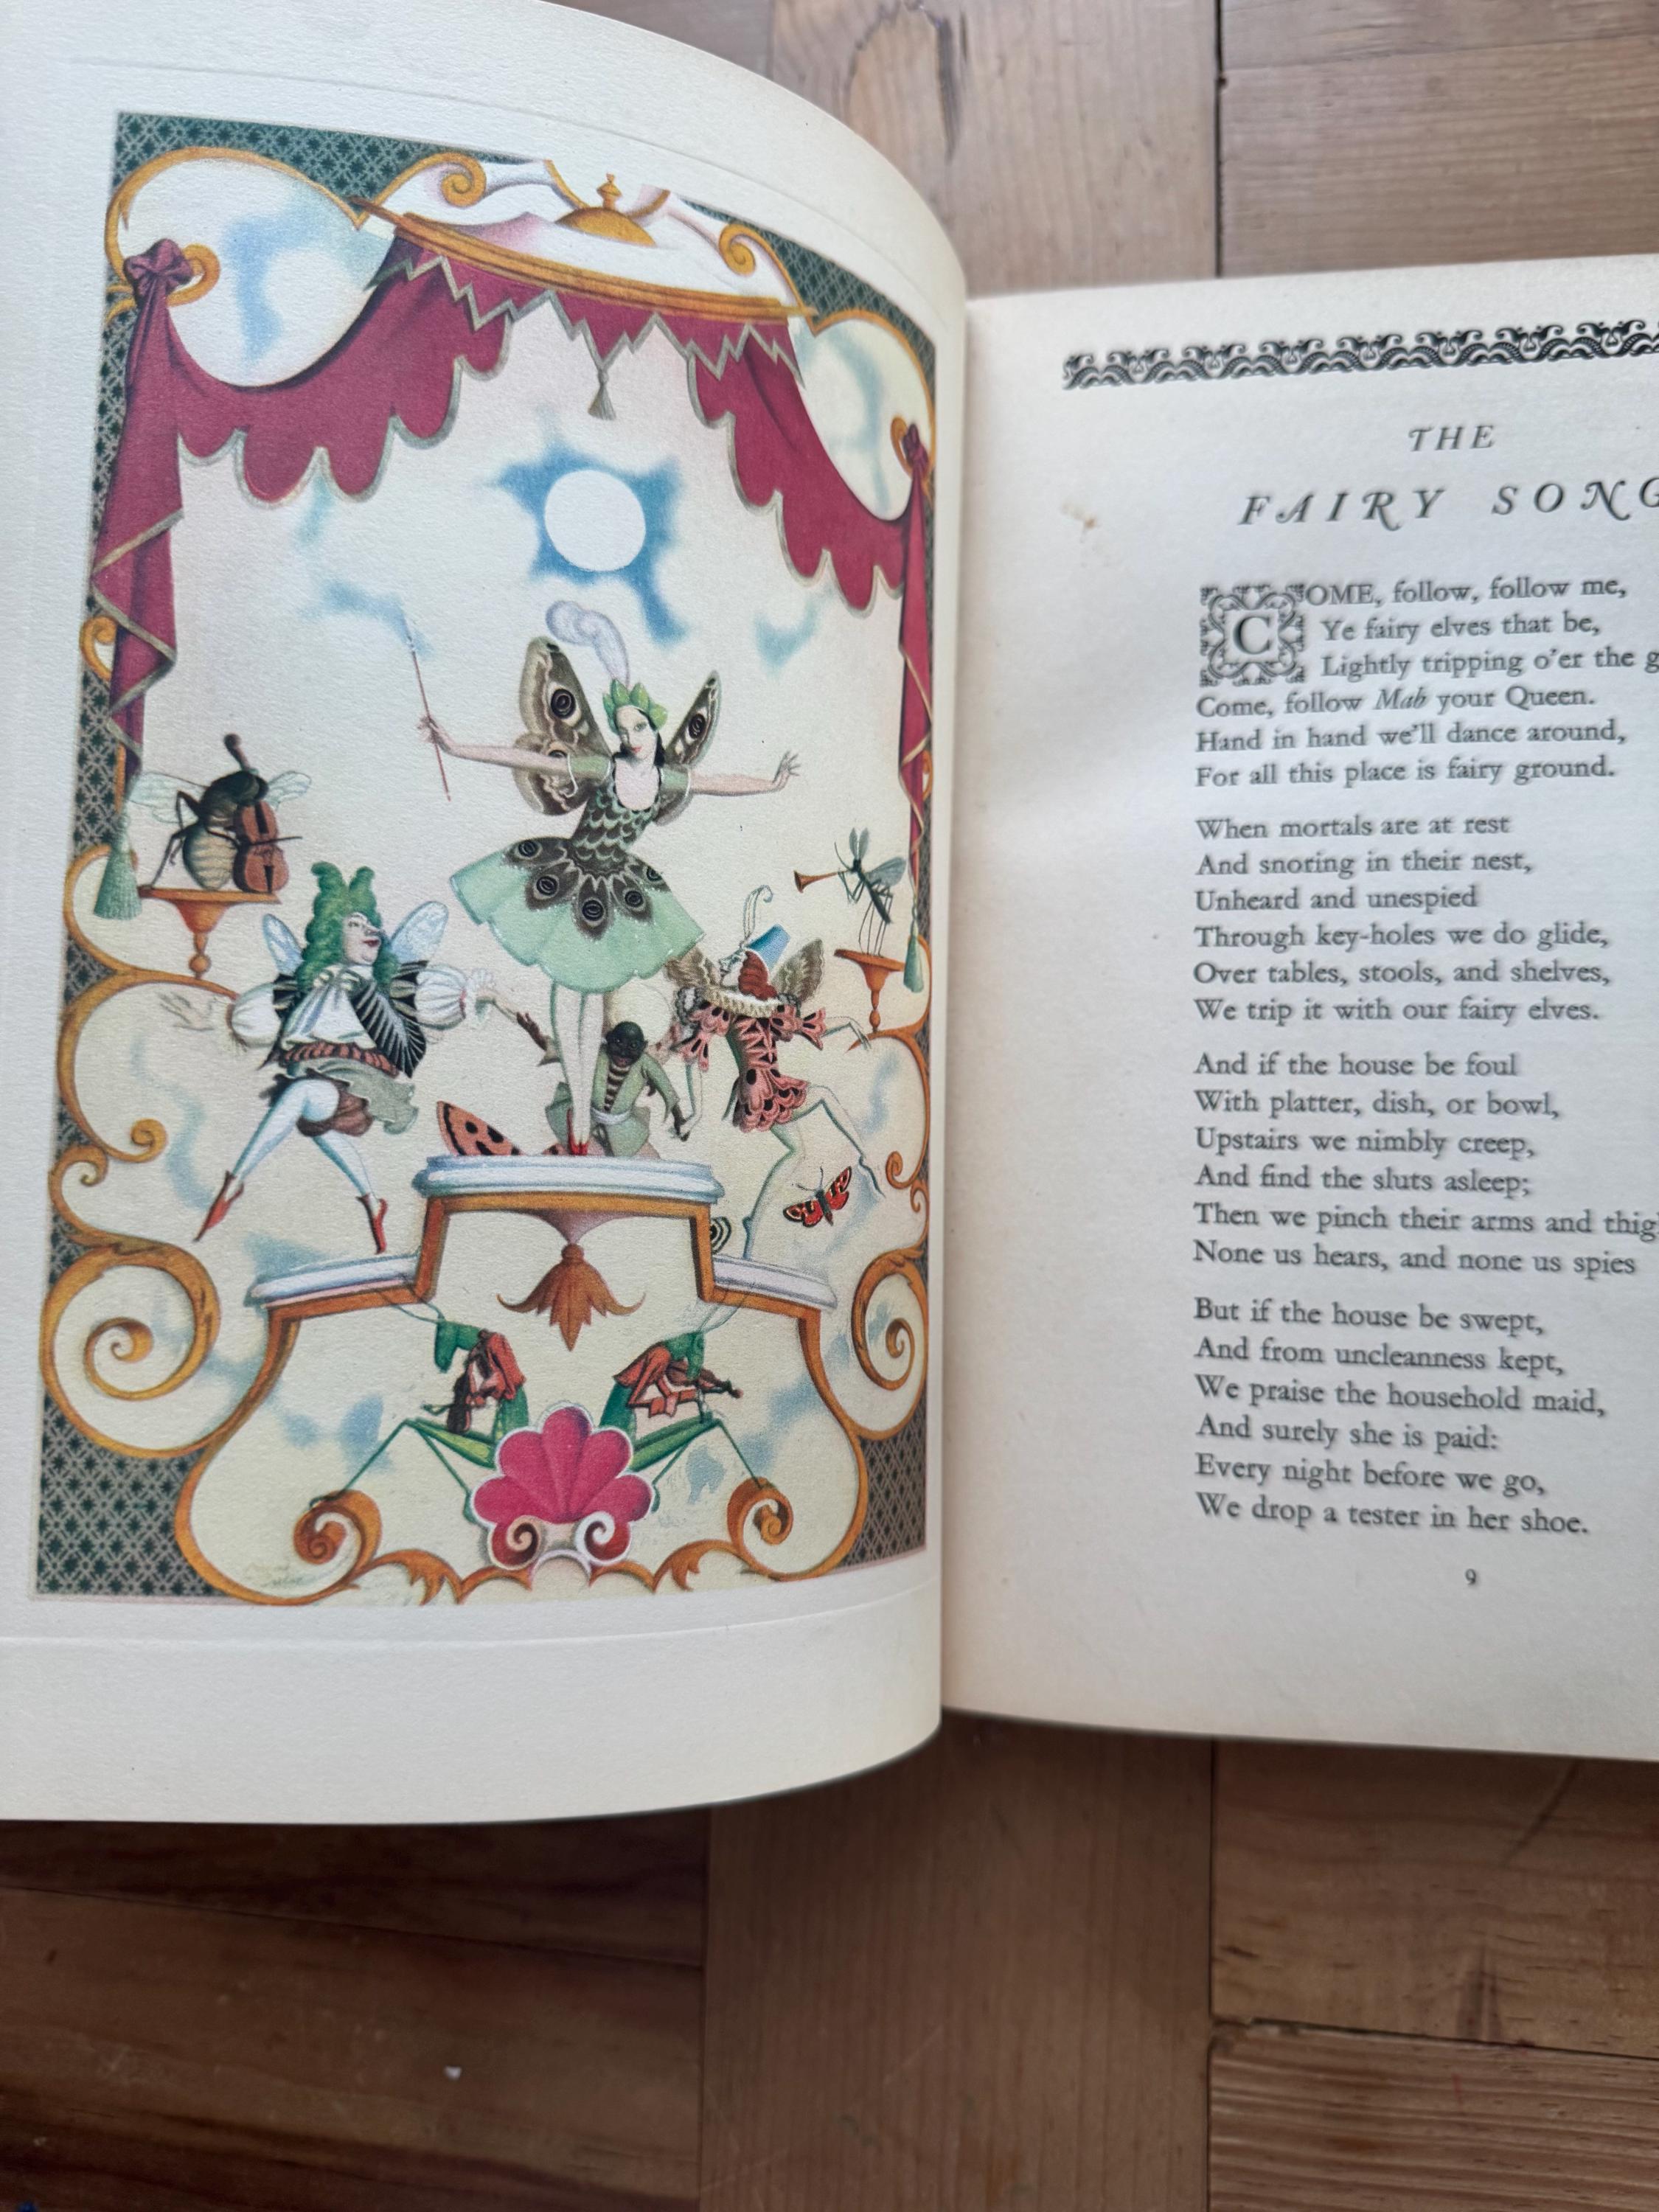 THE
FAIRY SONG
COME, follow, follow me,
Ye fairy elves that be,
Lightly tripping o'er the g
Come, follow Mab your Queen.
Hand in hand we'll dance around,
For all this place is fairy ground.
When mortals are at rest
And snoring in their nest,
Unheard and unespied
Through key-holes we do glide,
Over tables, stools, and shelves,
We trip it with our fairy elves.
And if the house be foul
With platter, dish, or bowl,
Upstairs we nimbly creep,
And find the sluts asleep;
Then we pinch their arms and thig
None us hears, and none us spies
But if the house be swept,
And from uncleanness kept,
We praise the household maid,
And surely she is paid:
Every night before we go,
We drop a tester in her shoe.
9